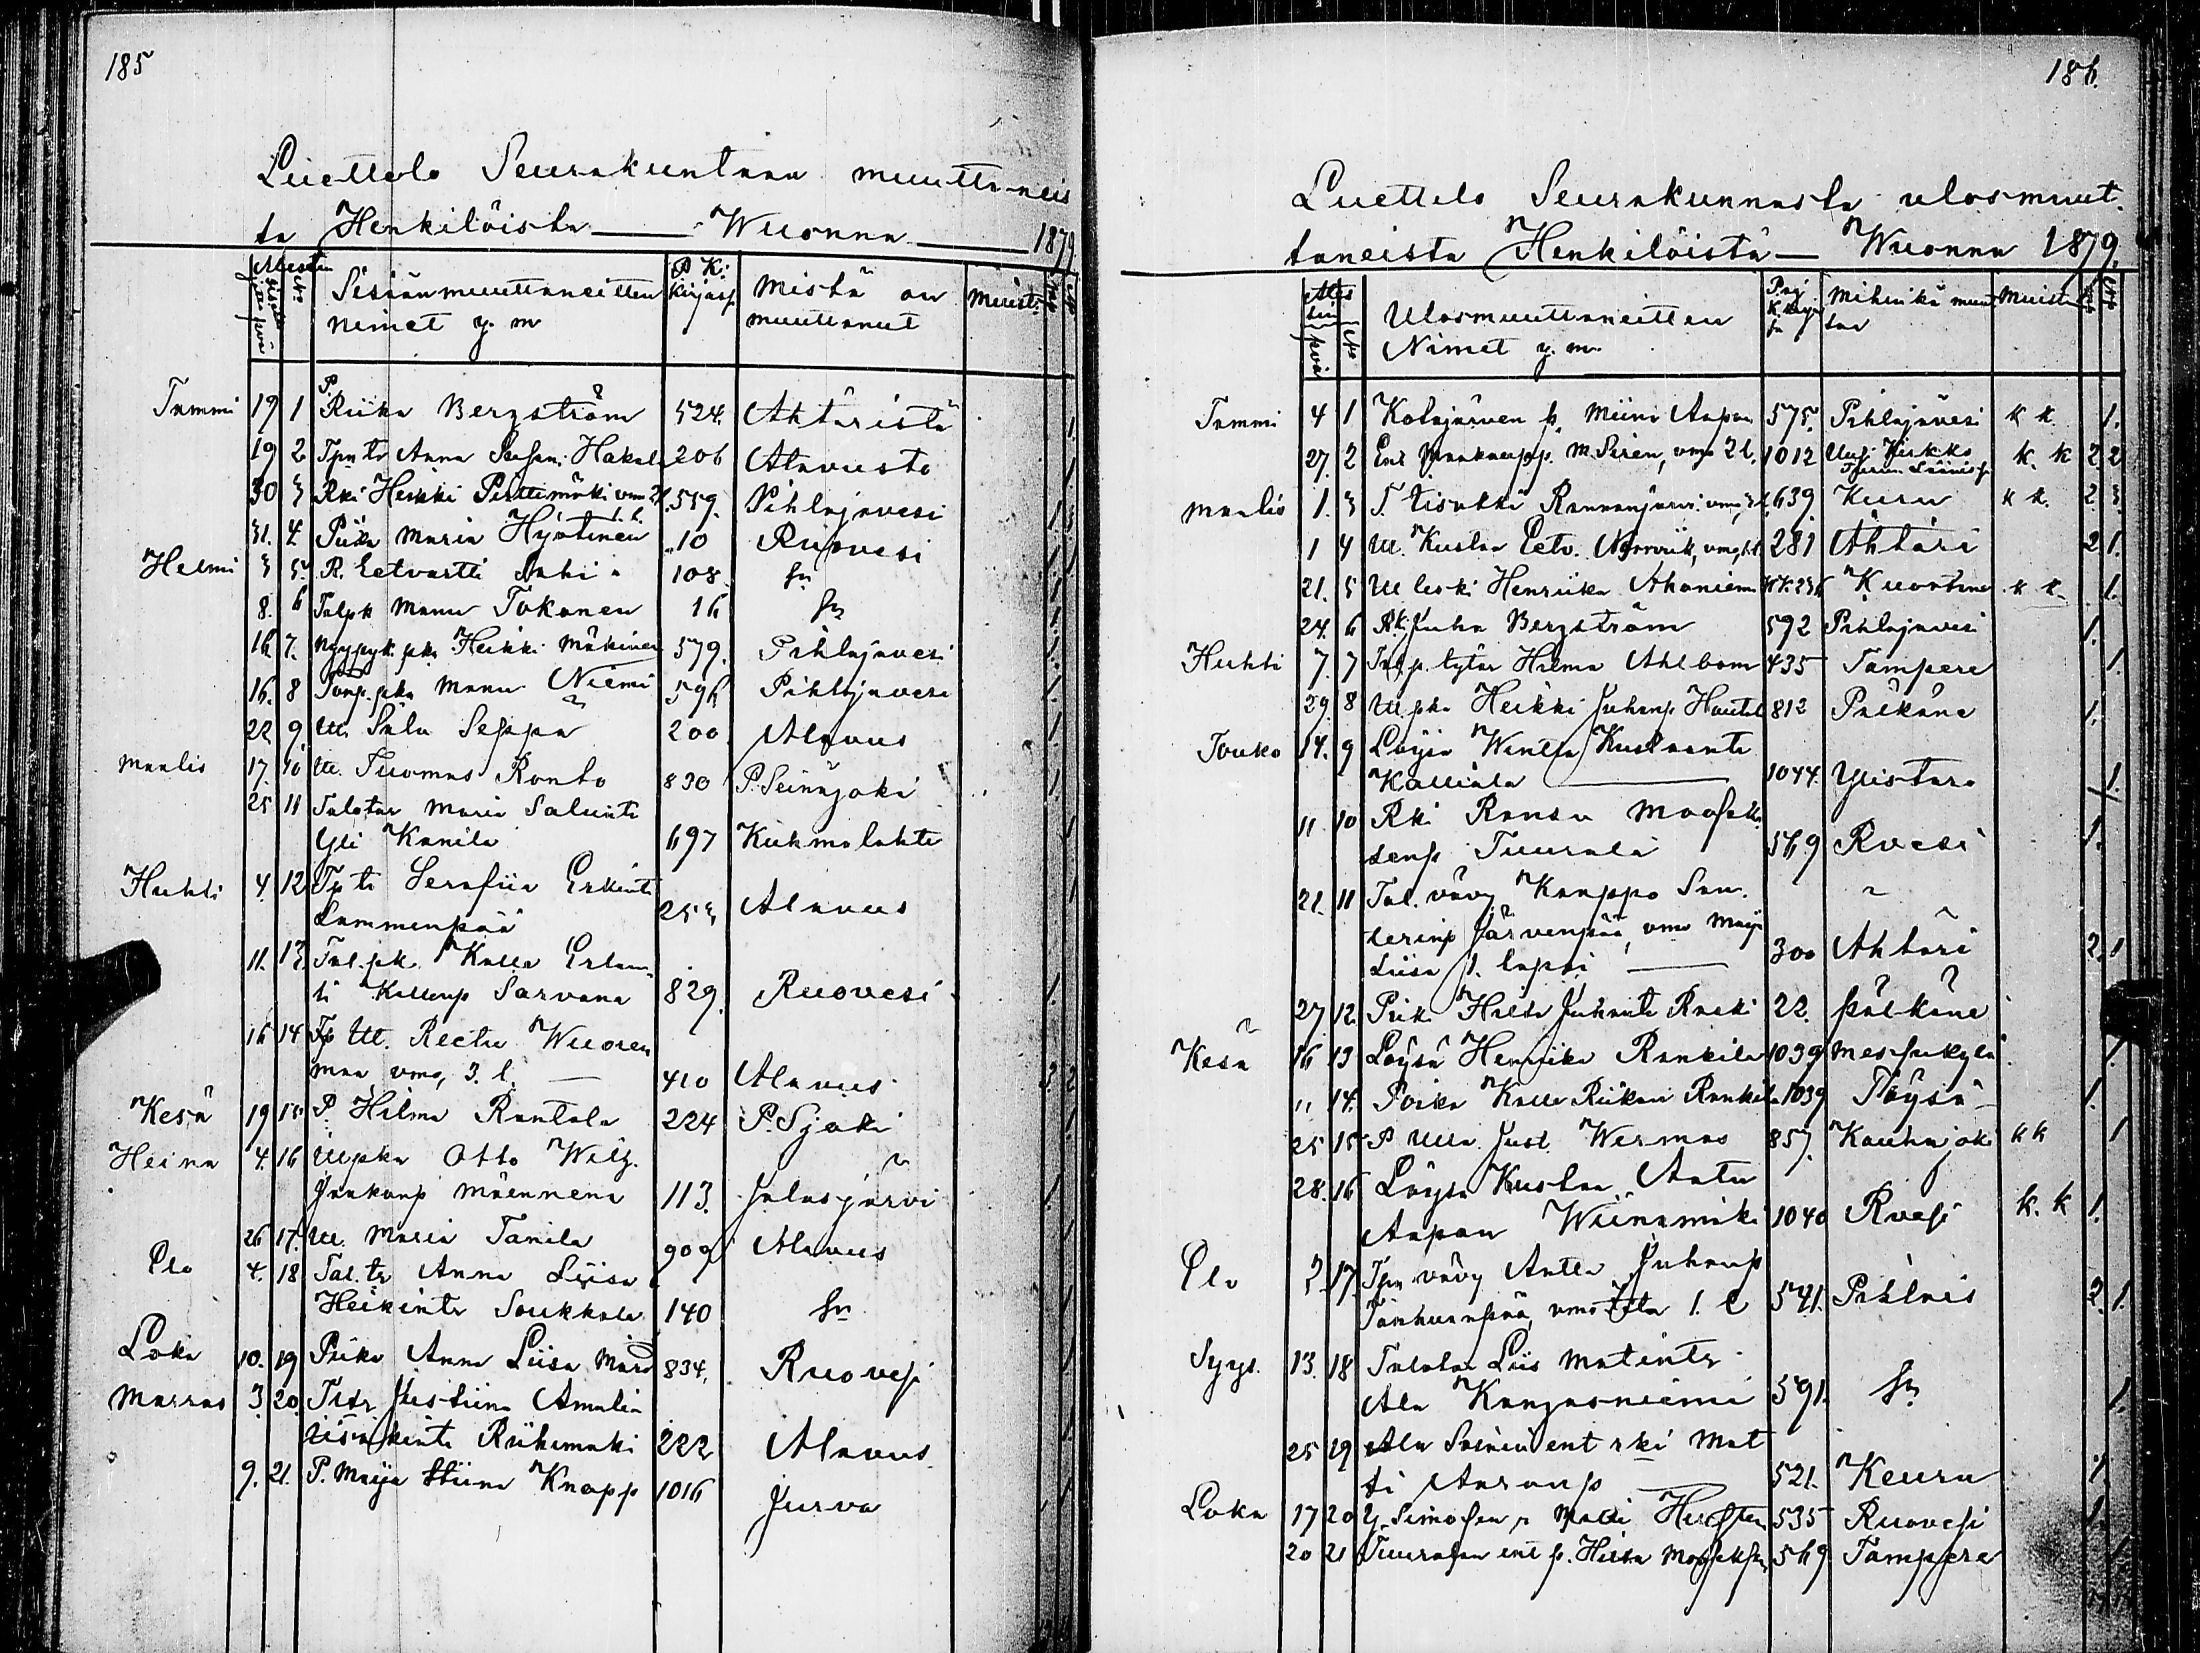 185
Luettelo Seurakuntaan muuttaneis
ta Henkilöistä Wuonna 1879
Sisäänmuuttaneitten nimet y. m P. K. Kirjasp. Mistä on muuttanut Muist.
Tammi 19 1 P. Riika Bergström 524. Ähtäristä 1.
19 2 Tpn tr Anna Hakala 206 Alavusta 1
30 3 Rki Heikki Perttimäki vmo 2 l. 559. Pihlajavesi 1. 3
31. 4 Piika Maria Hyötinen 10 Ruovesi 1
Helmi 3 5. R. Eetvartti Lahi 108. sn 1
8. 6 Talpk Manu Tokonen 16 sn 1.
16. 7. pka Heikki Mäkinen 579. Pihlajavesi 1.
16. 8 pka Manu Niemi 596 Pihlajavesi 1.
22 9. Itt. Salu Seppä 200 Alavus 1.
Maalis 17. 10 Itt. Tuomas Ronto 830 P. Seinäjoki 1.
25 11 Talotar Maria Salunte
Yli Kanila 697 Kuhmalahti 1
Huhti 4. 12 Tp tr Serafiia Erkint.
Lammenpää 253 Alavus 1
11. 13 Tal. pk. Kalle Erlan
ti Kallenp Sarvana 829. Ruovesi 1.
16 14 Tp Itt. Reetu Wuoren
maa vmo, 3. l. 410 Alavus 3. 2
Kesä 19 15. P. Hilma Rantala 224 P. Sjoki 1
Heinä 4. 16 Itpka Otto Wilh.
Jaakonp Mäennenä 113. Jalasjärvi 1.
26 17. Itt. Maria Tanila 909 Alavus 1
Elo 4. 18 Tal. tr Anna Liisa
Heikintr Soukkala 140 sn 1
Loka 10. 19 Piika Anna Liisa 834. Ruovesi 1
Marras 3. 20. Justiina Amalia
Iisakintr Riihimäki 222 Alavus 1
9. 21. P. Maija Stiina Knapp 1016 Jurva 1
186.
Luettelo Seurakunnasta ulosmuut.
taneista Henkilöistä Wuonna 1879.
Ulosmuuttaneitten Nimet y. m. Mihinkä muut tav Muist.
Tammi 4 1 Kolajärven p. Miina Aapon 575. Pihlajavesi k k. 1.
27. 2 M. Siren, vmo 2 l. 1012 Uusi Kirkko k. k 2 2
Maalis 1. 3 T. Iisakki Rannanjärvi vmo, 3 l. 639. Kuru k k. 2 3.
1 4 Itt. Kustaa Eetv. vmo, 1 l. 281 Ähtäri 2 1.
21. 5 Itt leski Henriika Ahoniemi Kuortane k k. 1.
24. 6 Rk. Juha Bergström 592 Pihlajavesi 1.
Huhti 7. 7 Talp. tytär Hilma Ahlbom 435 Tampere 1.
29. 8 Itt. pka Heikki Juhanp Hautal 812 Pälkäne 1.
Touko 14. 9 Löysä Wentla Kustaante
Kalliala 1044. Ylistaro 1.
11 10 Rki Ransu Moosek
senp Tuurala 569 Rvesi 1.
21. 11 Tal. vävy Kaappo San.
terinp Järvenpää, vmo Maija
Liisa 1. lapsi 300 Ähtäri 2. 1
27 12. Piik. Hilda Juhante Raski 22. Pälkäne 1
Kesä 16 13 Löysä Henriika Rankila 1039 Messukylä 1.
" 14. Poika Kalle Riikan Rankila 1039 Töysä 1.
25 15 P. Ulla Just. Wermas 857. Kauhajoki k k 1
28. 16 Löysä Kustaa Antu
Aapon Wiinamäki 1040 Rvesi k. k 1.
Elo 2. 17. Tpn vävy Antti Juhanp
Tanhuanpää, vmo Iita 1. l 541. Pihlvis 2. 1.
Syys. 13. 18 Talotar Liis Matintr
Ala Kangasniemi 591. sn 1.
25 19 Ala ent rki Mat
ti Aaronp 521. Keuru 1
Loka 17 20 Y. Simosen r Matti 535 Ruovesi 1.
20 21 Tuuralan ent p. Hilda 569 Tampere 1